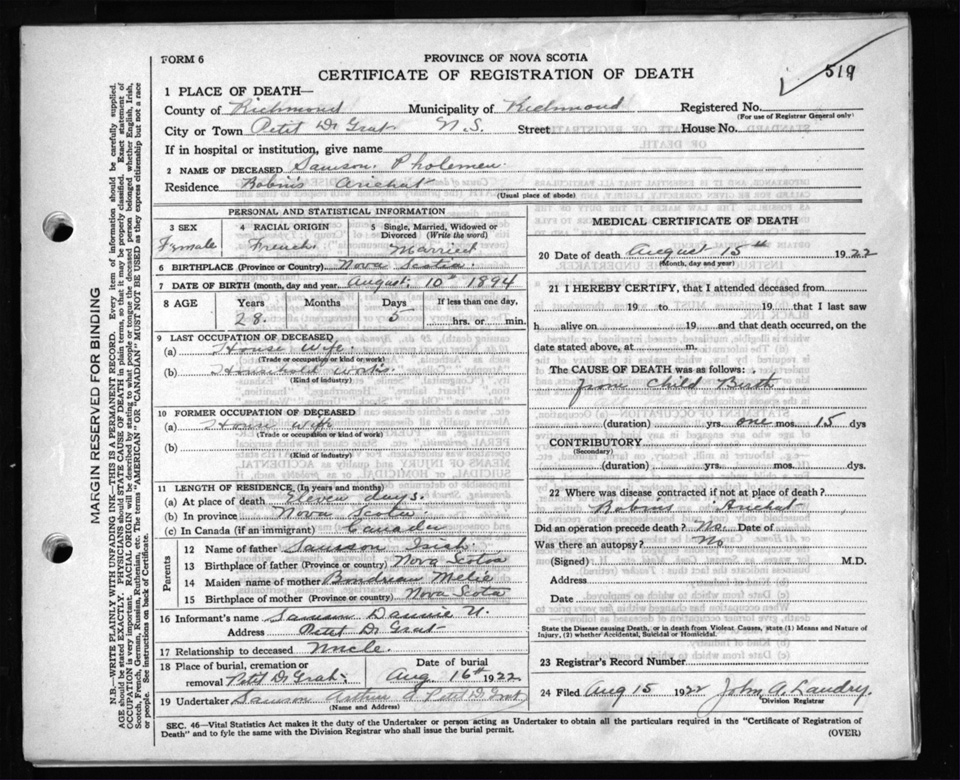 519
FORM 6
PROVINCE OF NOVA SCOTIA
CERTIFICATE OF REGISTRATION OF DEATH
1 PLACE OF DEATH—
County of Richmond Municipality of Richmond Registered No.
(For use of Registrar General only)
City or Town Petit De Grat N.S. Street House No.
If in hospital or institution, give name
2 NAME OF DECEASED Samson. Pholemen.
Residence Robins Arichat
(Usual place of abode)
PERSONAL AND STATISTICAL INFORMATION
3 SEX 4 RACIAL ORIGIN 5 Single, Married, Widowed or Divorced (Write the word)
Fymale French. Married
6 BIRTHPLACE (Province or Country) Nova Scotia.
7 DATE OF BIRTH (month, day and year) August. 10th 1894
8 AGE Years Months Days If less than one day,
28. 5 hrs. or min.
9 LAST OCCUPATION OF DECEASED
(a) House wife.
(Trade or occupation or kind of work)
(b) Household works.
(Kind of industry)
10 FORMER OCCUPATION OF DECEASED
(a) House wife
(Trade or occupation or kind of work)
(b)
(Kind of industry)
11 LENGTH OF RESIDENCE (In years and months)
(a) At place of death Eleven days.
(b) In province Nova Scotia
(c) In Canada (if an immigrant) Canada
Parents
12 Name of father Samson
13 Birthplace of father (Province or country) Nova Scotia
14 Maiden name of mother Boudreau Melie
15 Birthplace of mother (Province or country) Nova Scota
16 Informant's name Samson Dannie U.
Address Petit De Grat
17 Relationship to deceased Uncle.
18 Place of burial, cremation or removal Petit De Grat. Date of burial Aug 16th 1922
19 Undertaker Samson Arthur Petit De Grat
(Name and Address)
MEDICAL CERTIFICATE OF DEATH
20 Date of death August 15th 1922
(Month, day and year)
21 I HEREBY CERTIFY, that I attended deceased from
19 to 19 that I last saw
h alive on 19 and that death occurred, on the
date stated above, at m.
The CAUSE OF DEATH was as follows:
from Child Birth
(duration) yrs. one mos. 15 dys
CONTRIBUTORY
(Secondary)
(duration) yrs. mos. dys.
22 Where was disease contracted if not at place of death?
Robins Arichat
Did an operation precede death? No Date of
Was there an autopsy? No
(Signed) M.D.
Address
Date
State the Disease causing Death, or in death from Violent Causes, state (1) Means and Nature of
Injury, (2) whether Accidental, Suicidal or Homicidal.
23 Registrar's Record Number
24 Filed Aug 15 1922 John A. Landry.
Division Registrar
SEC. 46—Vital Statistics Act makes it the duty of the Undertaker or person acting as Undertaker to obtain all the particulars required in the "Certificate of Registration of
Death" and to fyle the same with the Division Registrar who shall issue the burial permit.
(OVER)
MARGIN RESERVED FOR BINDING
N.B.—WRITE PLAINLY WITH UNFADING INK—THIS IS A PERMANENT RECORD. Every item of information should be carefully supplied.
AGE should be stated EXACTLY. PHYSICIANS should STATE CAUSE OF DEATH in plain terms, so that it may be properly classified. Exact statement of
OCCUPATION is very important. RACIAL ORIGIN will be described by stating to what people or tongue the deceased person belonged whether English, Irish,
Scotch, French, German, Russian, Ruthenian, etc. The terms "AMERICAN" OR "CANADIAN" MUST NOT BE USED as they express citizenship but not a race
or people. See instructions on back of Certificate.